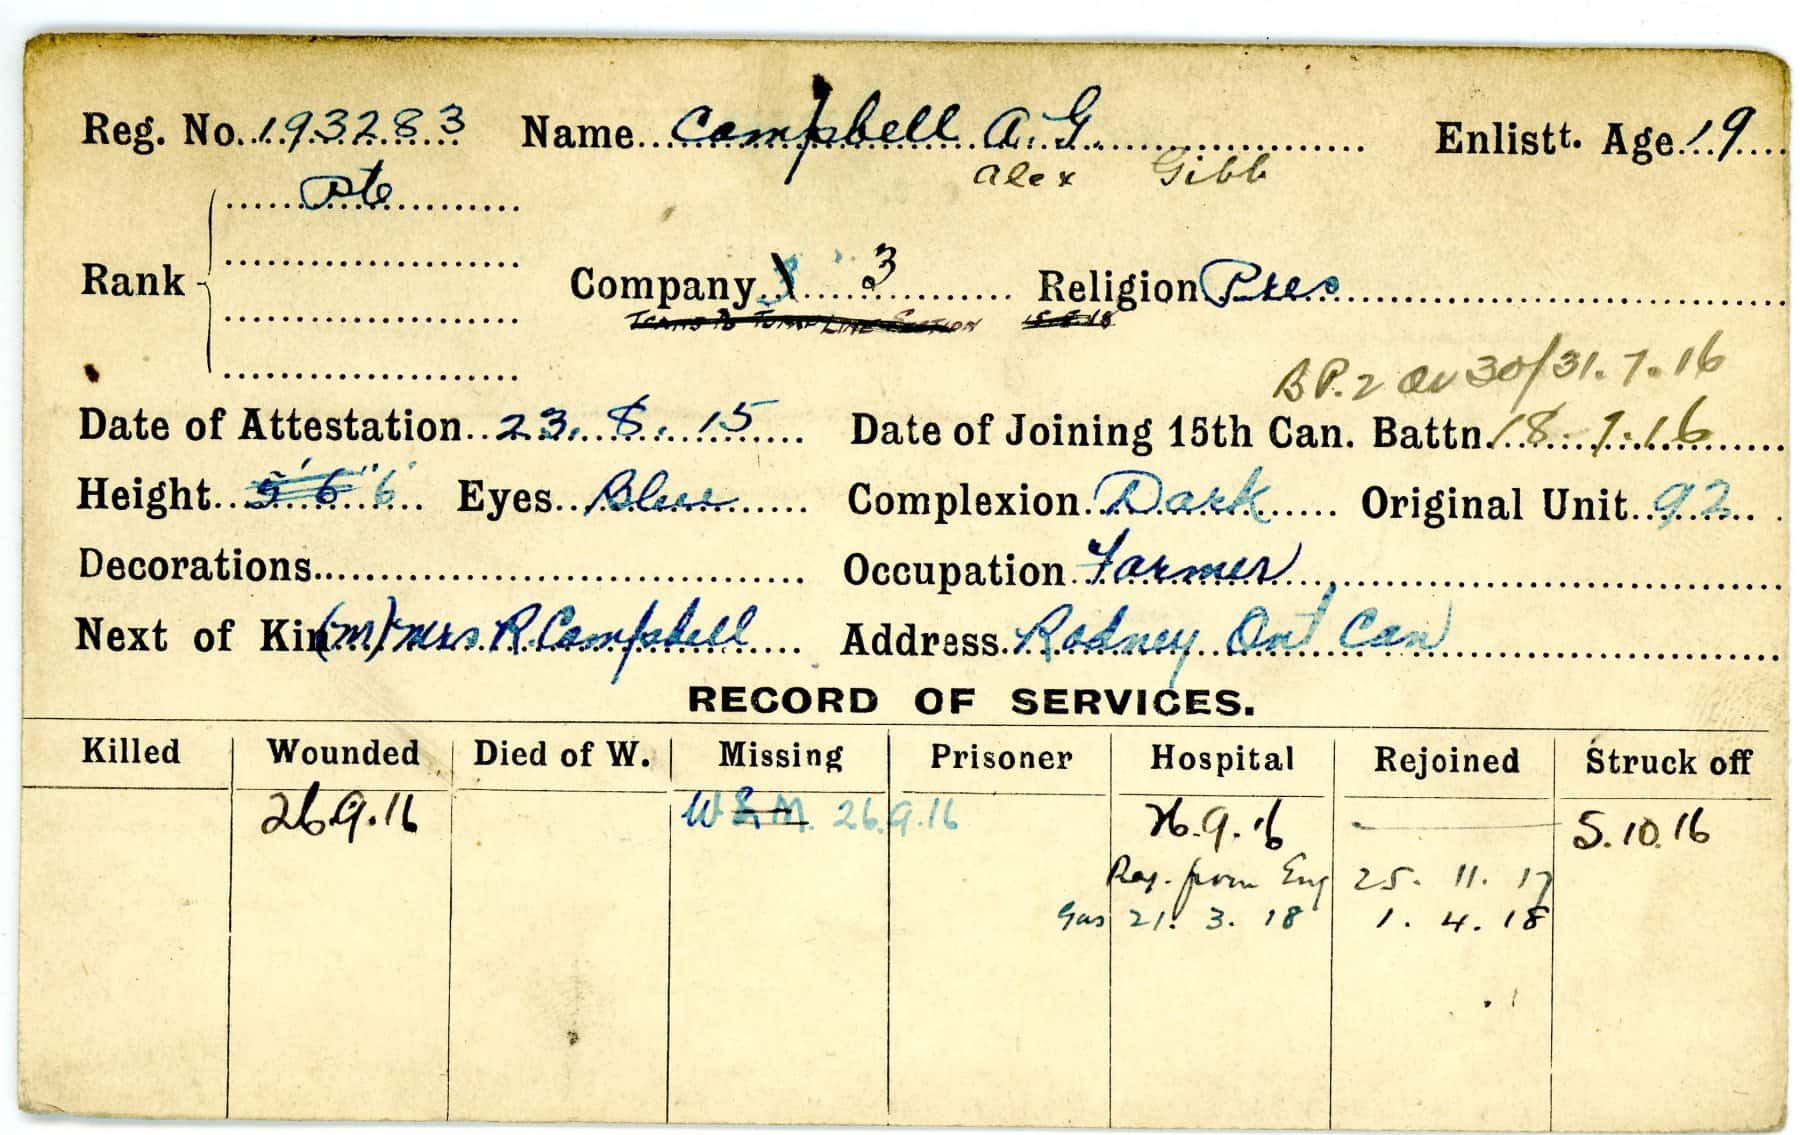 Reg. No. 193283 Name Campbell A. G. Enlistt. Age 19
Alex Gibb
Pte
Rank Company 3 Religion Pres
Trans to Tump Line Section 15.5.18
B P. 2 Ov 30/31.7.16
Date of Attestation 23. 8. 15 Date of Joining 15th Can. Battn. 18.7.16
Height 5' 6" 6' Eyes Blue Complexion Dark Original Unit 92
Decorations Occupation Farmer
Next of Kin (m) Mrs R. Campbell Address Rodney Ont Can
RECORD OF SERVICES.
Killed Wounded Died of W. Missing Prisoner Hospital Rejoined Struck off
26.9.16 W & M. 26.9.16 26.9.16 5.10.16
from Eng 25. 11. 17
Gas 21. 3. 18 1. 4. 18